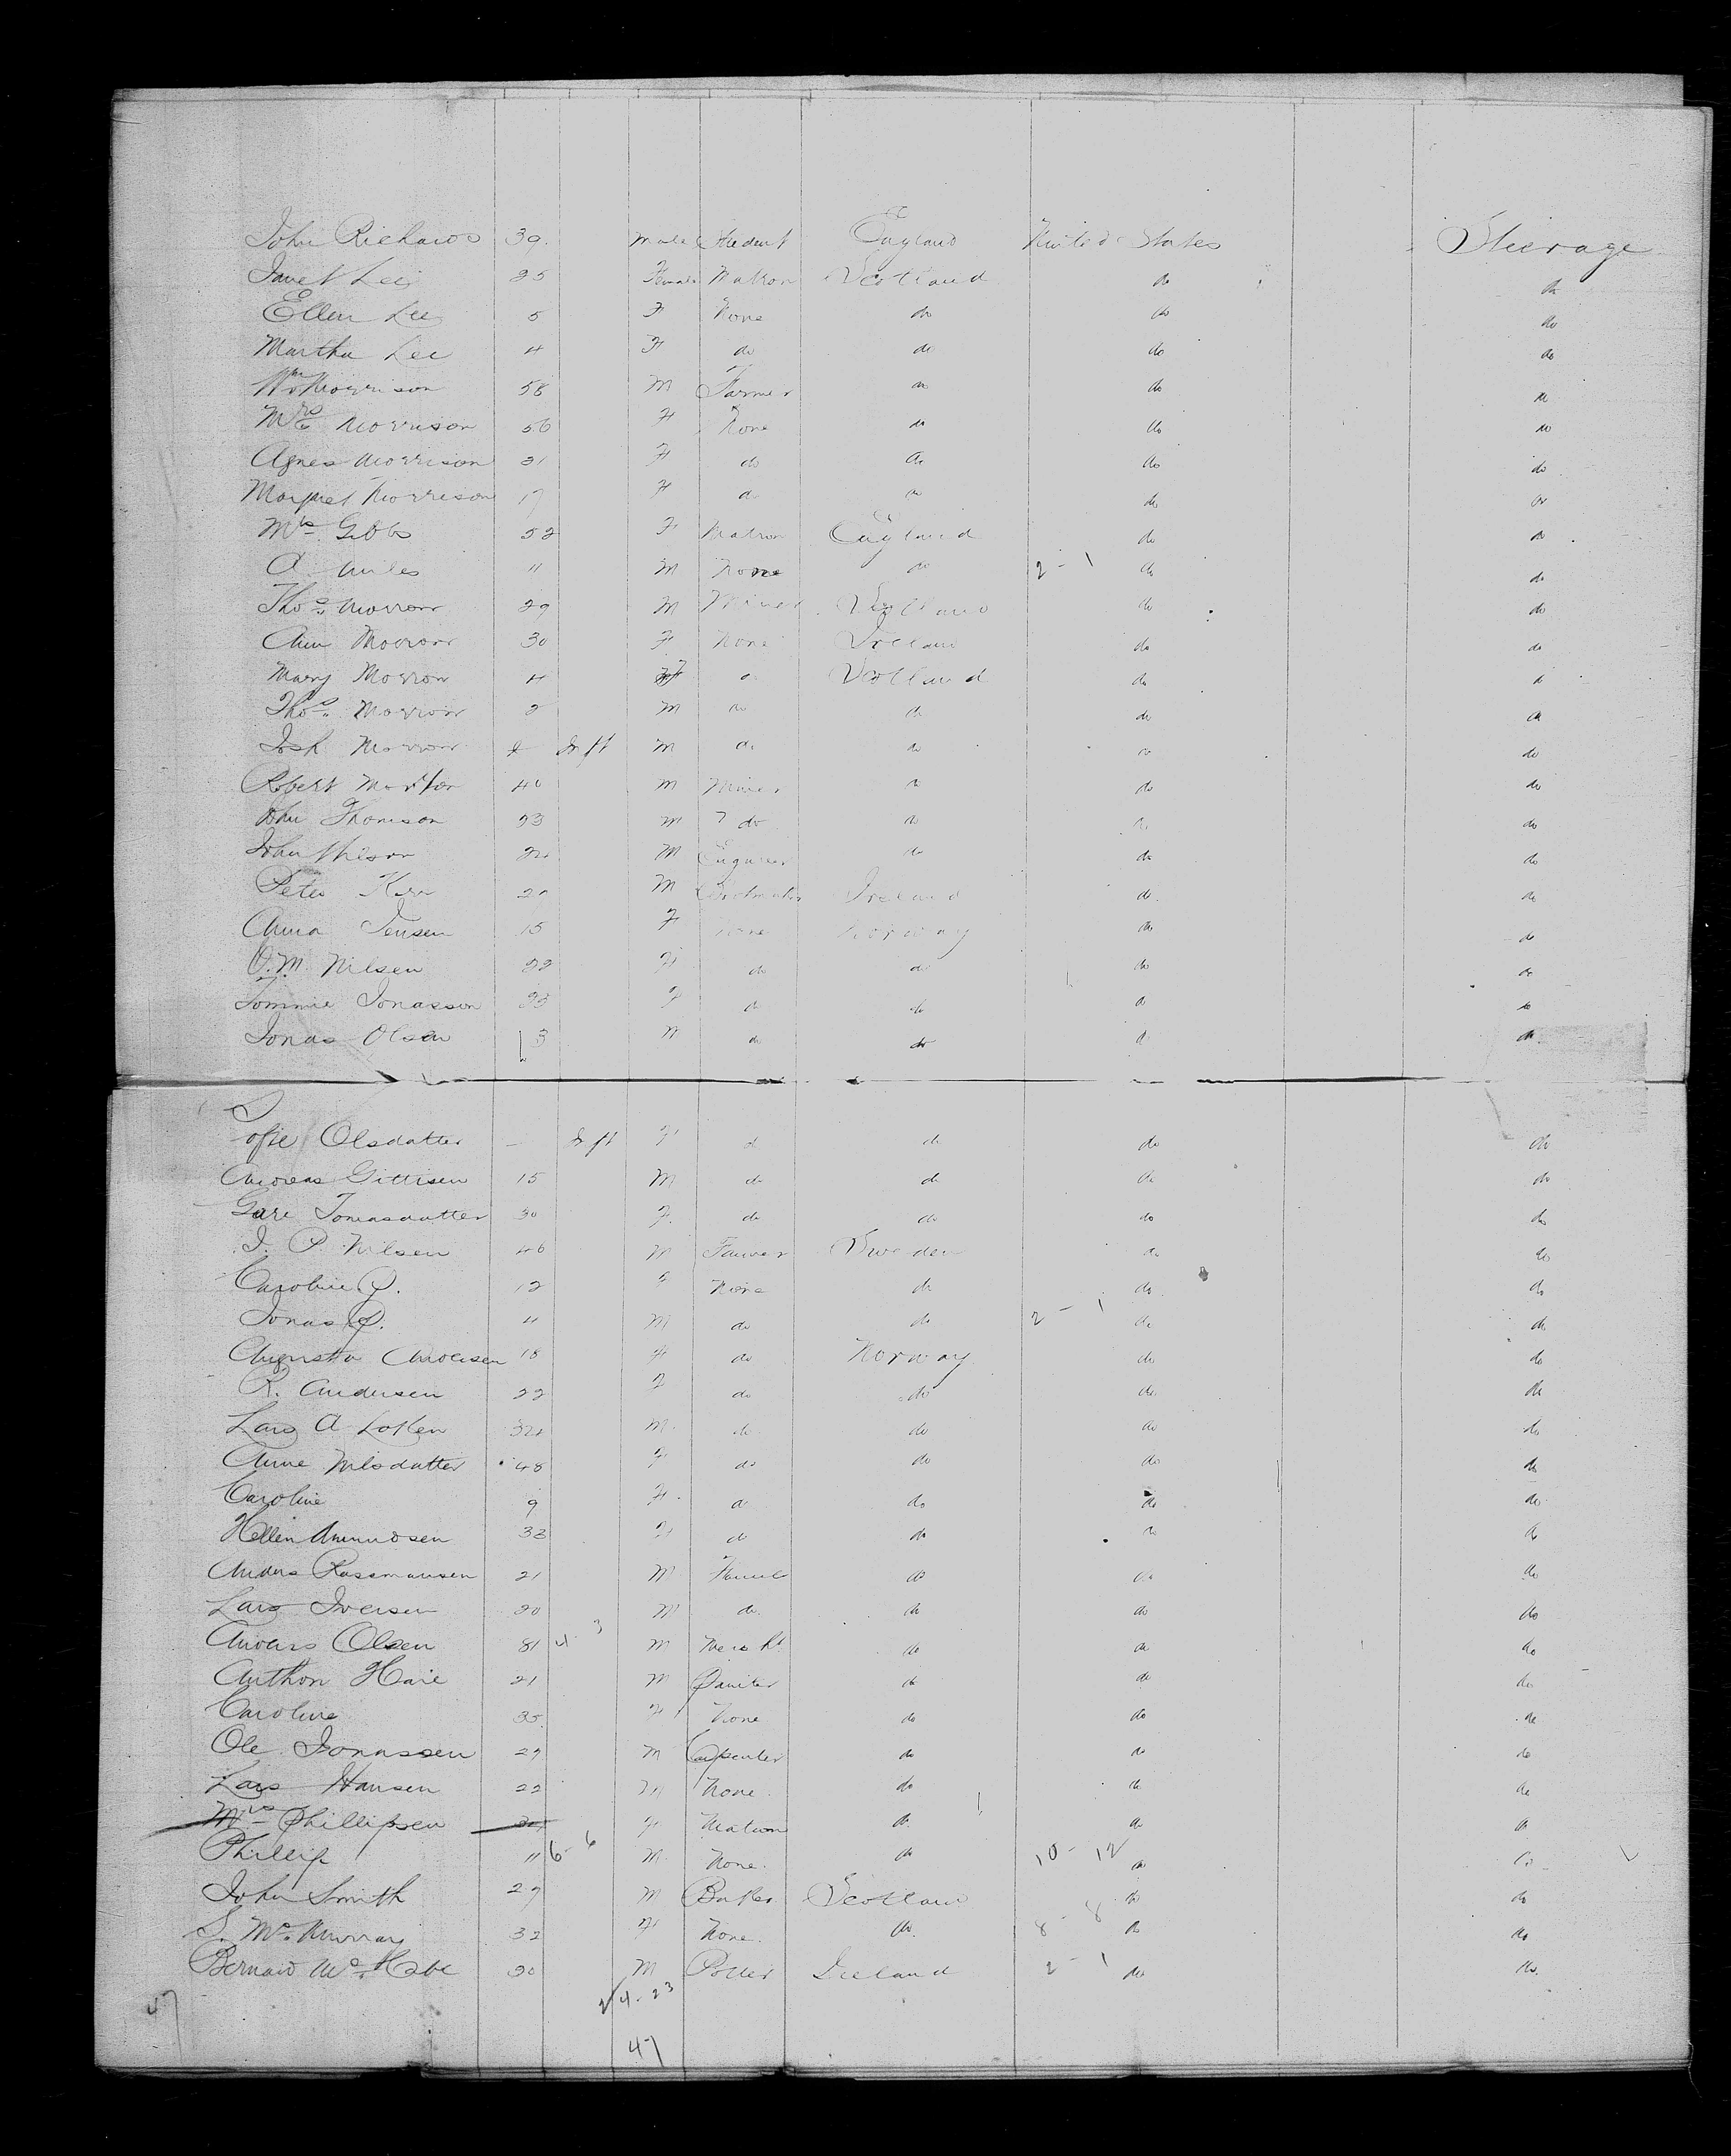 John Richards 39. Male Student England United States Steerage
Janet Lee 25 Female Matron Scotland do do
Ellen Lee 5 F None do do do
Martha Lee 4 F do do do do
Wm Morrison 58 M Farmer do do do
Mrs Morrison 56 F None do do do
Agnes Morrison 21 F do do do do
Margret Morrison 17 F do do do do
Mrs Gibbs 52 F Matron England do do
A Miles 11 M None do 2 - 1 do do
Thos. Morrow 29 M Miner Scotland do do
Ann Morrow 30 F. None Ireland do do
Mary Morrow 4 F do Scotland do do
Thos. Morrow 2 M do do do do
Josh Morrow Inft M do do do do
Robert Morton 40 M Miner do do do
John Thomson 23 M do do do do
John Wilson M Engineer do do do
Peter Kerr M Ireland do do
Anna Jensen 15 F None Norway do do
O. M. Nilsen 22 F do do do do
Tommie Jonasson 23 F do do do do
Jonas Olsen 3 M do do do do
Sofie Olsdatter - Inft F do do do do
Andreas Gittisen 15 M do do do do
Gure Tomasdatter 30 F. do do do do
J. P. Nilsen 46 M Farmer Sweden do do
Caroline P. 12 F None do do do
Jonas P. 11 M do do 2 - 1 do do
Augusta Andersen 18 F do Norway do do
R. Andersen 22 F do do do do
Lars A Loken M. do do do do
Anne Nilsdatter 48 F do do do do
Caroline 9 F. do do do do
Hellen Amundsen 33 F do do do do
Anders Rassmausen 21 M do do do
Lars Iversen 20 M do. do do do
Anders Olsen 31 4 - 3 M Mercht. do do do
Anthon Haie 21 M Painter do do do
Caroline 35 F None do do do
Ole Jonassen 29 M Carpenter do do do
Lars Hansen 22 M None do do do
Mrs Phillipsen F Matron do do do
Phillip 11 6 - 6 M. None. do 10 - 12 do do
John Smith 29 M Baker Scotland do do
S. Mc. Murray 32 F None. do. 8 - 8 do do
Bernard Mc. Cabe 30 M Potter Ireland 2 - 1 do do.
47 24 - 23
47